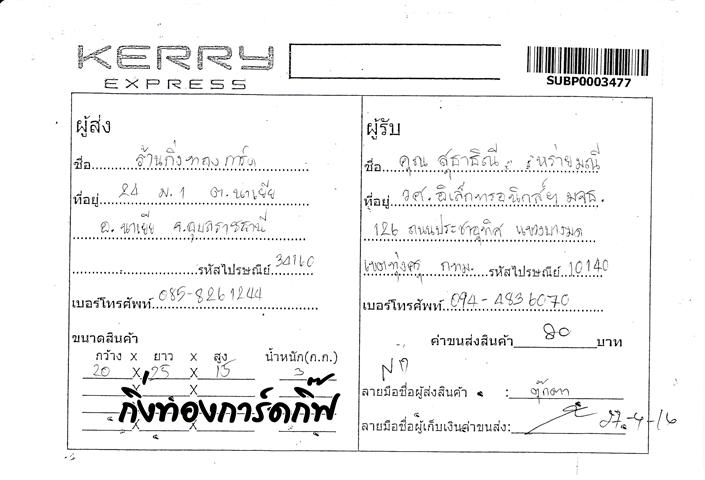 KERRY
EXPRESS
SUBP0003477
ผู้ส่ง
ชื่อ ร้านกิ่งทอง การ์ด
ที่อยู่ 24 ม.1 ต.นาเยีย
อ.นาเยีย จ.อุบลราชธานี
รหัสไปรษณีย์ 34160
เบอร์โทรศัพท์ 085-8261244
ขนาดสินค้า
กว้าง x ยาว x สูง น้ำหนัก(ก.ก.)
20 X 25 X 15 3
X
X
X
กิ่งทองการ์ดกิ๊ฟ
ผู้รับ
ชื่อ คุณ สุธาธิณี
ที่อยู่ วศ.อิเล็กทรอนิกส์ฯ มจธ.
126 ถนนประชาอุทิศ แขวงบางมด
เขตทุ่งครุ กทม. รหัสไปรษณีย์ 10140
เบอร์โทรศัพท์ 094-4836070
ค่าขนส่งสินค้า 80 บาท
ลายมือชื่อผู้ส่งสินค้า : ตุ๊กตา
ลายมือชื่อผู้เก็บเงินค่าขนส่ง: 27-4-16